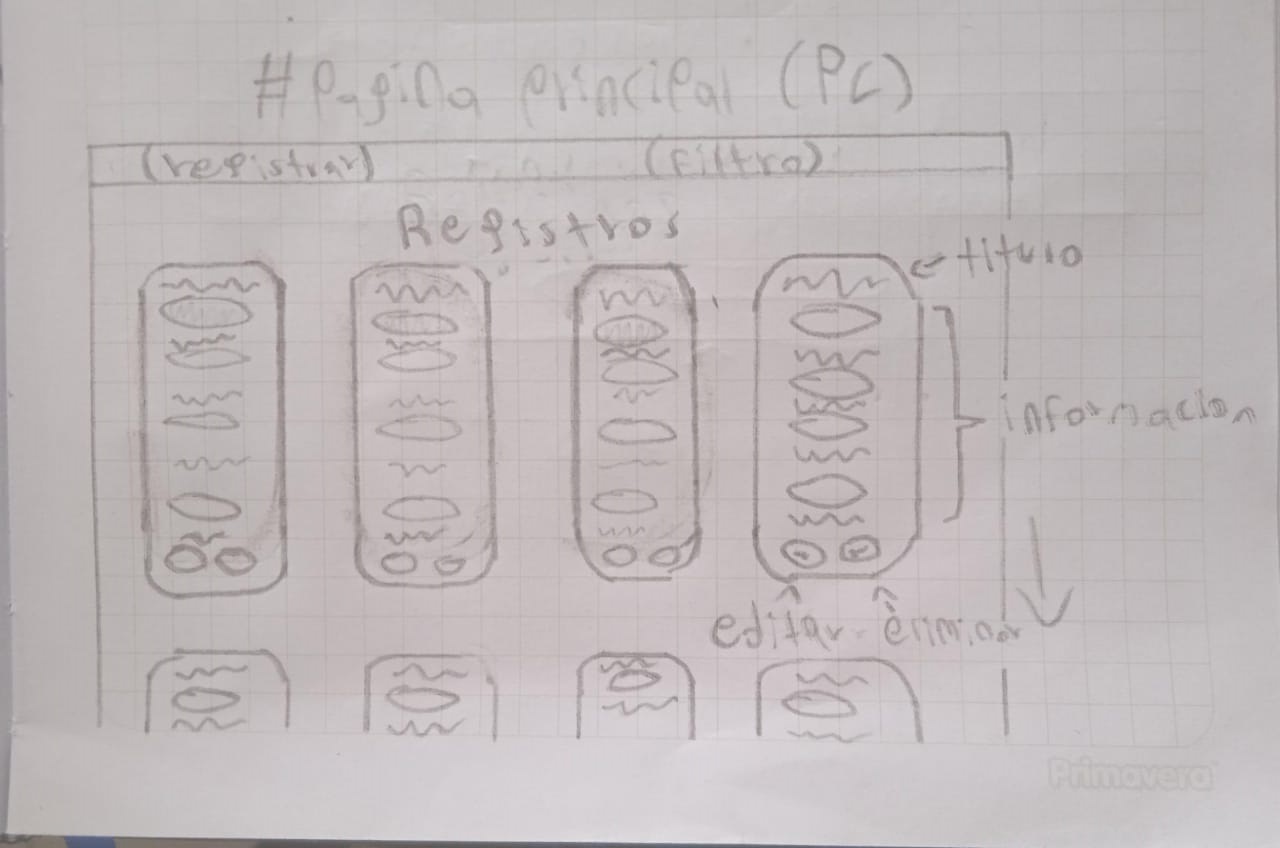 # Pagina principal (PC)
(registrar) (Filtro)
Registros
titulo
informacion
editar eliminar
Primavera